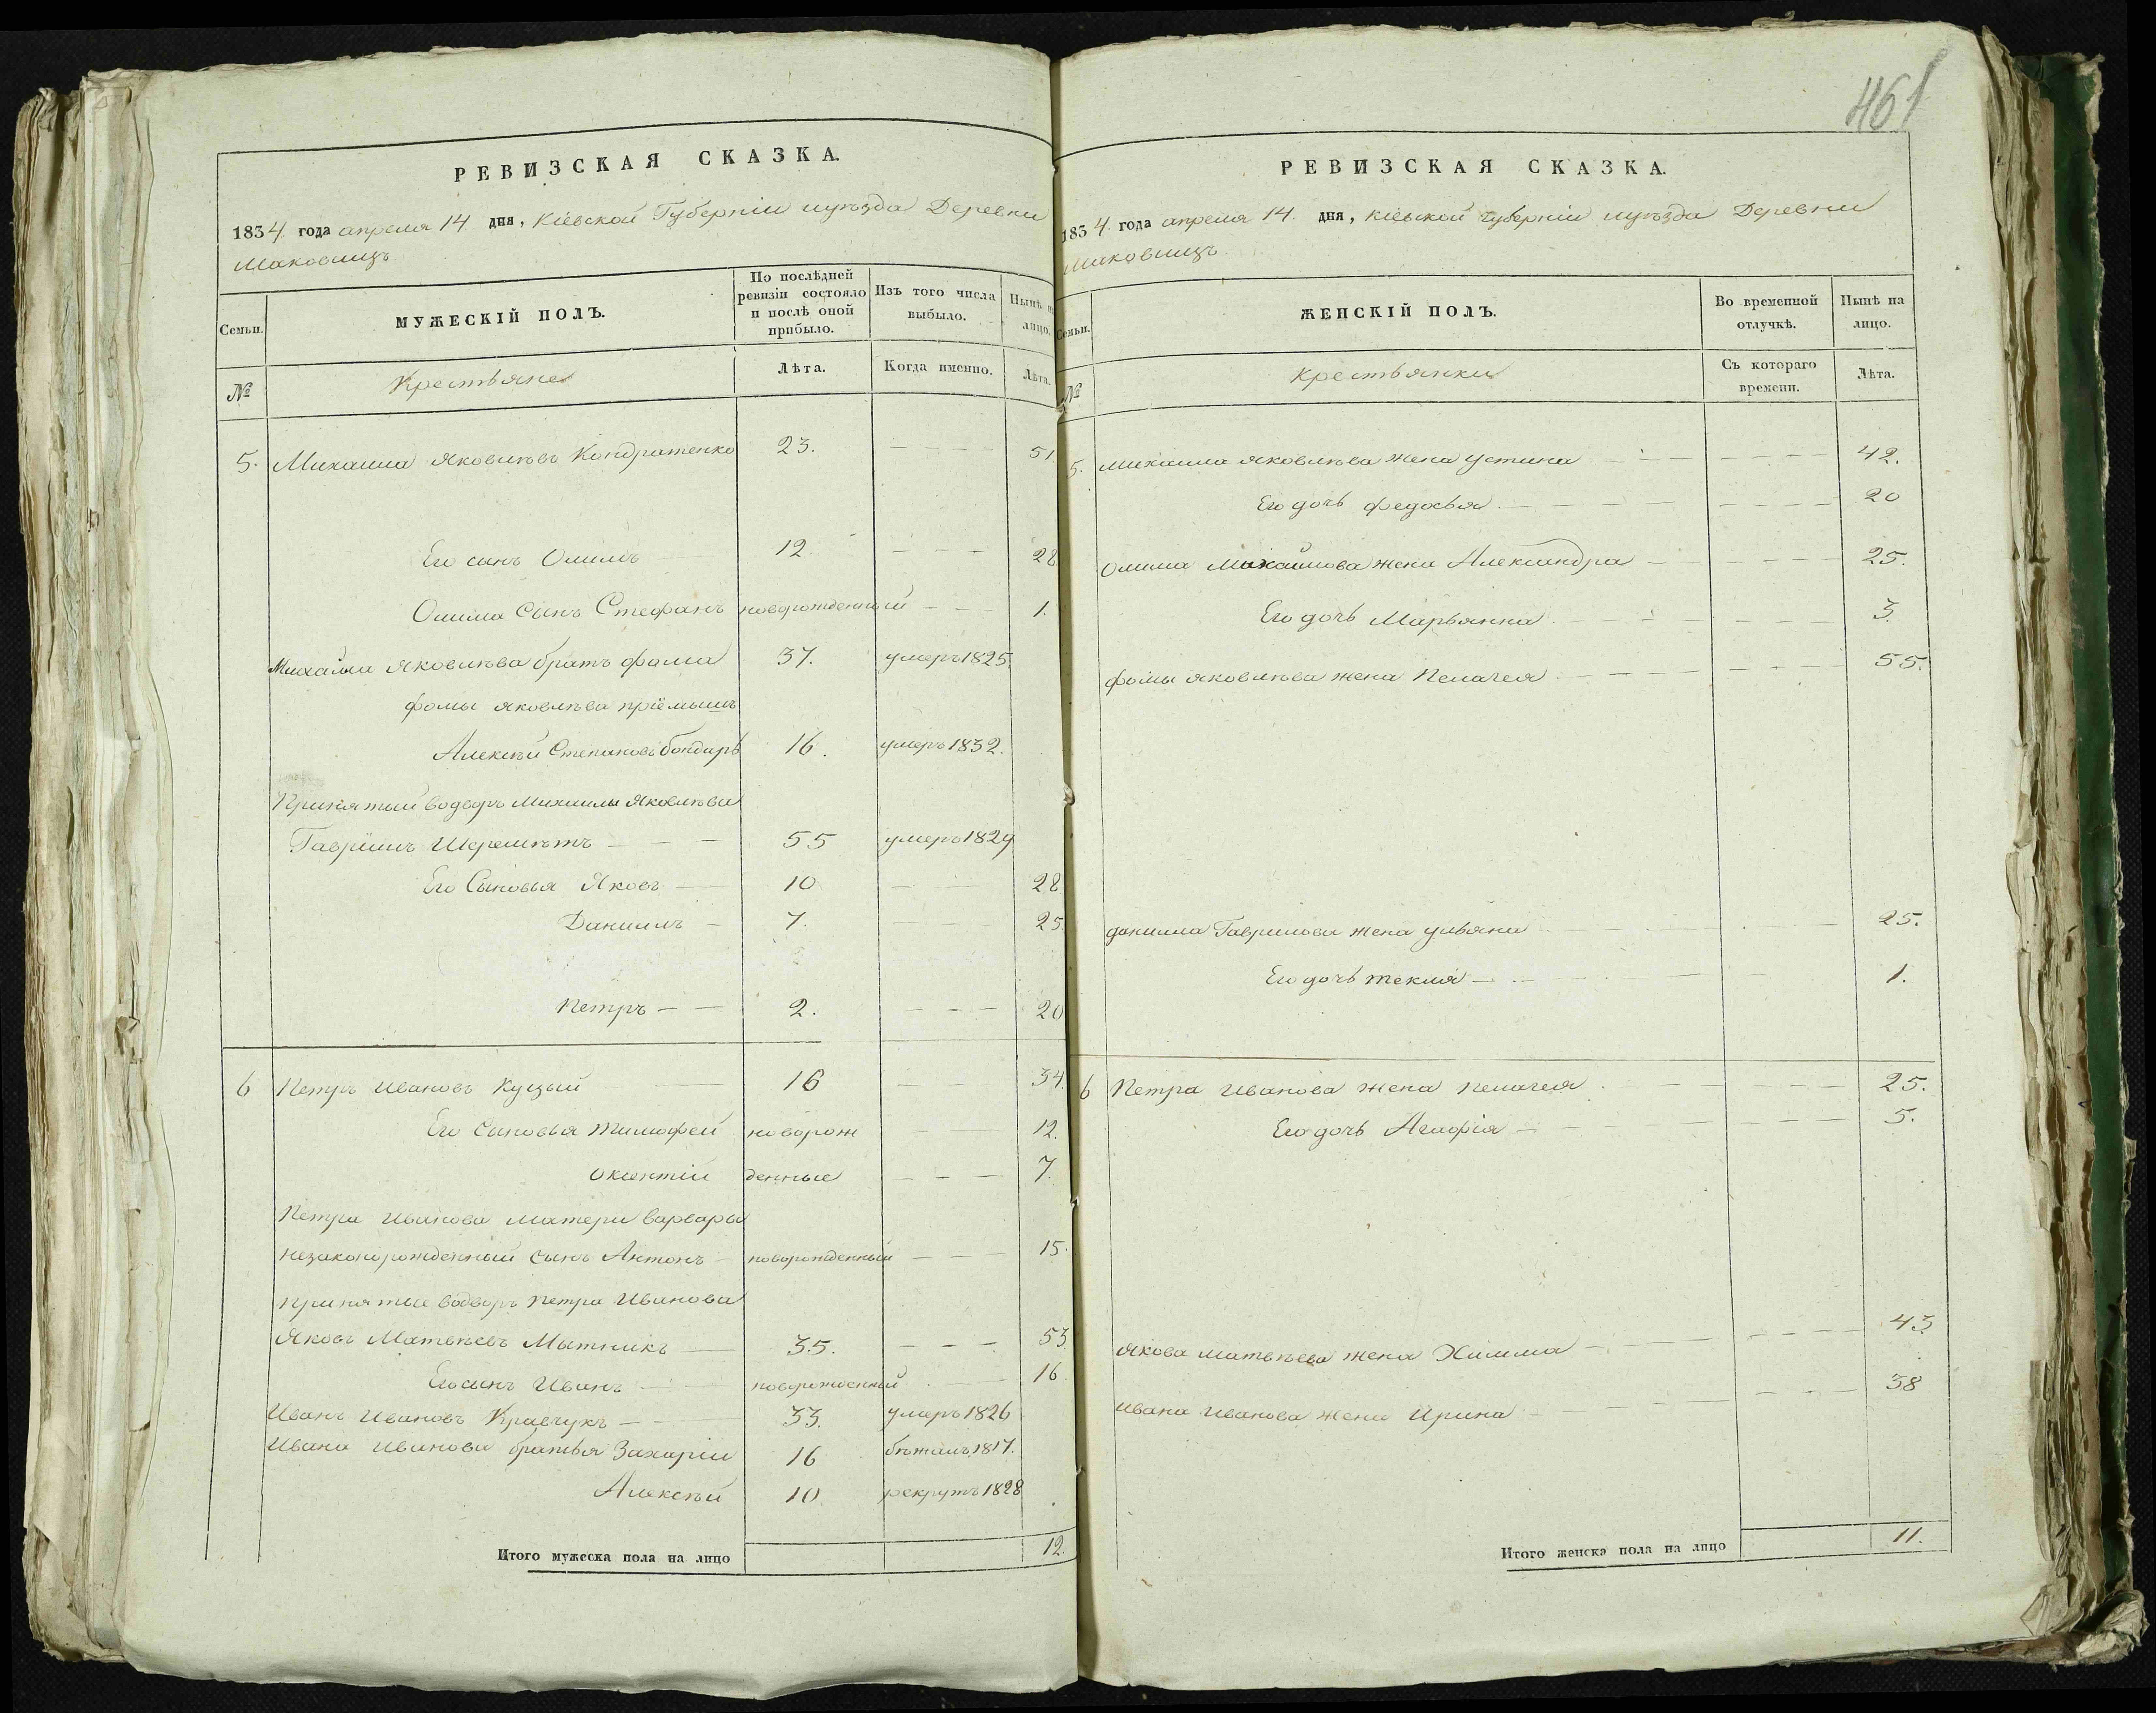 РЕВИЗСКАЯ СКАЗКА.
1834 года апреля 14 дня, Кіевской Губерніи иуѣзда Деревни
Маковищъ
Семьи. МУЖЕСКІЙ ПОЛЪ. По послѣдней ревизіи состояло и послѣ оной прибыло. Изъ того числа выбыло. Нынѣ на лицо.
№ Крестьяне Лѣта. Когда именно. Лѣта.
5. Михаила Яковлѣвъ Кондратенко 23. 51.
Его сынъ Олимъ 12 28.
Олима Сынъ Стефанъ новорожденный 1.
Михайла Яковлѣва братъ Фома 37. умеръ 1825.
Фомы Яковлѣва пріёмышъ
Алексѣй Степановъ Бондарь 16. умеръ 1832.
Принятый водворъ Михаилы Яковлѣва
Гаврiилъ Шереметъ 55 умеръ 1829
Его Сыновья Яковъ 10 28
Даниилъ 7. 25.
Петръ 2. 20
6 Петръ Ивановъ Куцый 16 34.
Его сыновья Тимофей новорож 12.
Оксентій денные 7.
Петра Иванова матери Варвары
незаконорожденный сынъ Антонъ новорожденный 15.
принятые водворъ Петра Иванова
Яковъ Матвѣевъ Мытникъ 35. 53.
Его сынъ Иванъ новорожденный 16.
Иванъ Ивановъ Кравчукъ 33. умеръ 1826
Ивана Иванова братья Захарій 16 бѣжалъ 1817.
Алексѣй 10 рекрутъ 1828
Итого мужеска пола на лицо 12.
461
РЕВИЗСКАЯ СКАЗКА.
1834 года апреля 14. дня, Кіевской губерніи иуѣзда Деревни
Маковищъ
Семьи. ЖЕНСКІЙ ПОЛЪ. Во временной отлучкѣ. Нынѣ на лицо.
№ Крестьянки Съ котораго времени. Лѣта.
5. Михаила Яковлѣва жена Устина 42.
Его дочь Федосья 20
Олима Михайлова жена Александра 25.
Его дочь Марьянна 3.
Фомы Яковлѣва жена Пелагея 55.
Даниила Гаврилова жена Ульяна 25.
Его дочь Текля 1.
6 Петра Иванова жена Пелагея 25.
Его дочь Агафія 5.
Якова Матвѣева жена Химма 43.
Ивана Иванова жена Ирина 38
Итого женска пола на лицо 11.